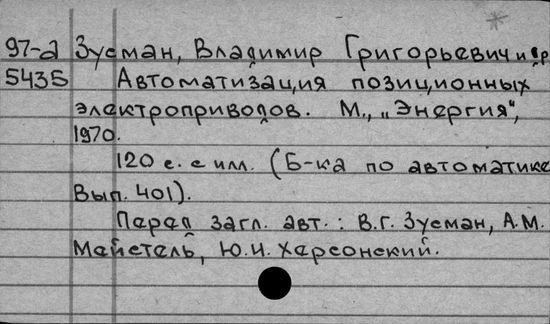 97-2 Зусман, Владимир Григорьевич и др.
5435 Автоматизация позиционных
электроприводов. М., „Энергия“,
1970.
120 с. с илл. (Б-ка по автоматике
Вып. 401).
Перед загл. авт.: В.Г. Зусман, А.М.
Мейстель, Ю.И. Херсонский.